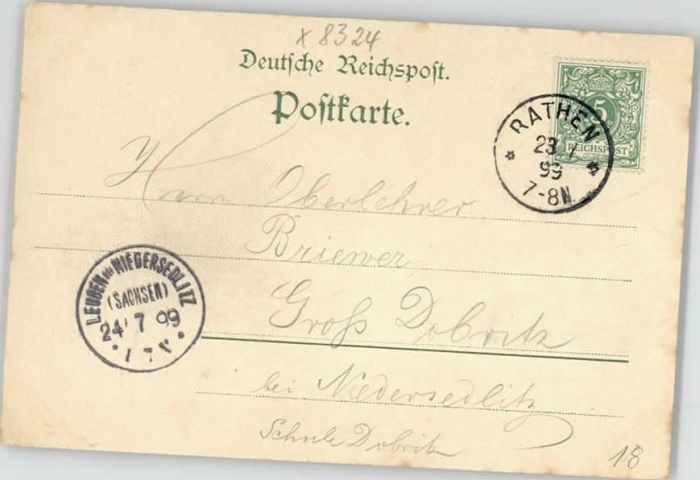 x 8324
Deutsche Reichspost.
Postkarte.
5
REICHSPOST
RATHEN
23 7
99
7-8N.
Herrn Oberlehrer
Briewer
Groß Dobritz
bei Niedersedlitz
Schule Dobritz
LEUBEN bei NIEDERSEDLITZ
(SACHSEN)
24 7 99
18